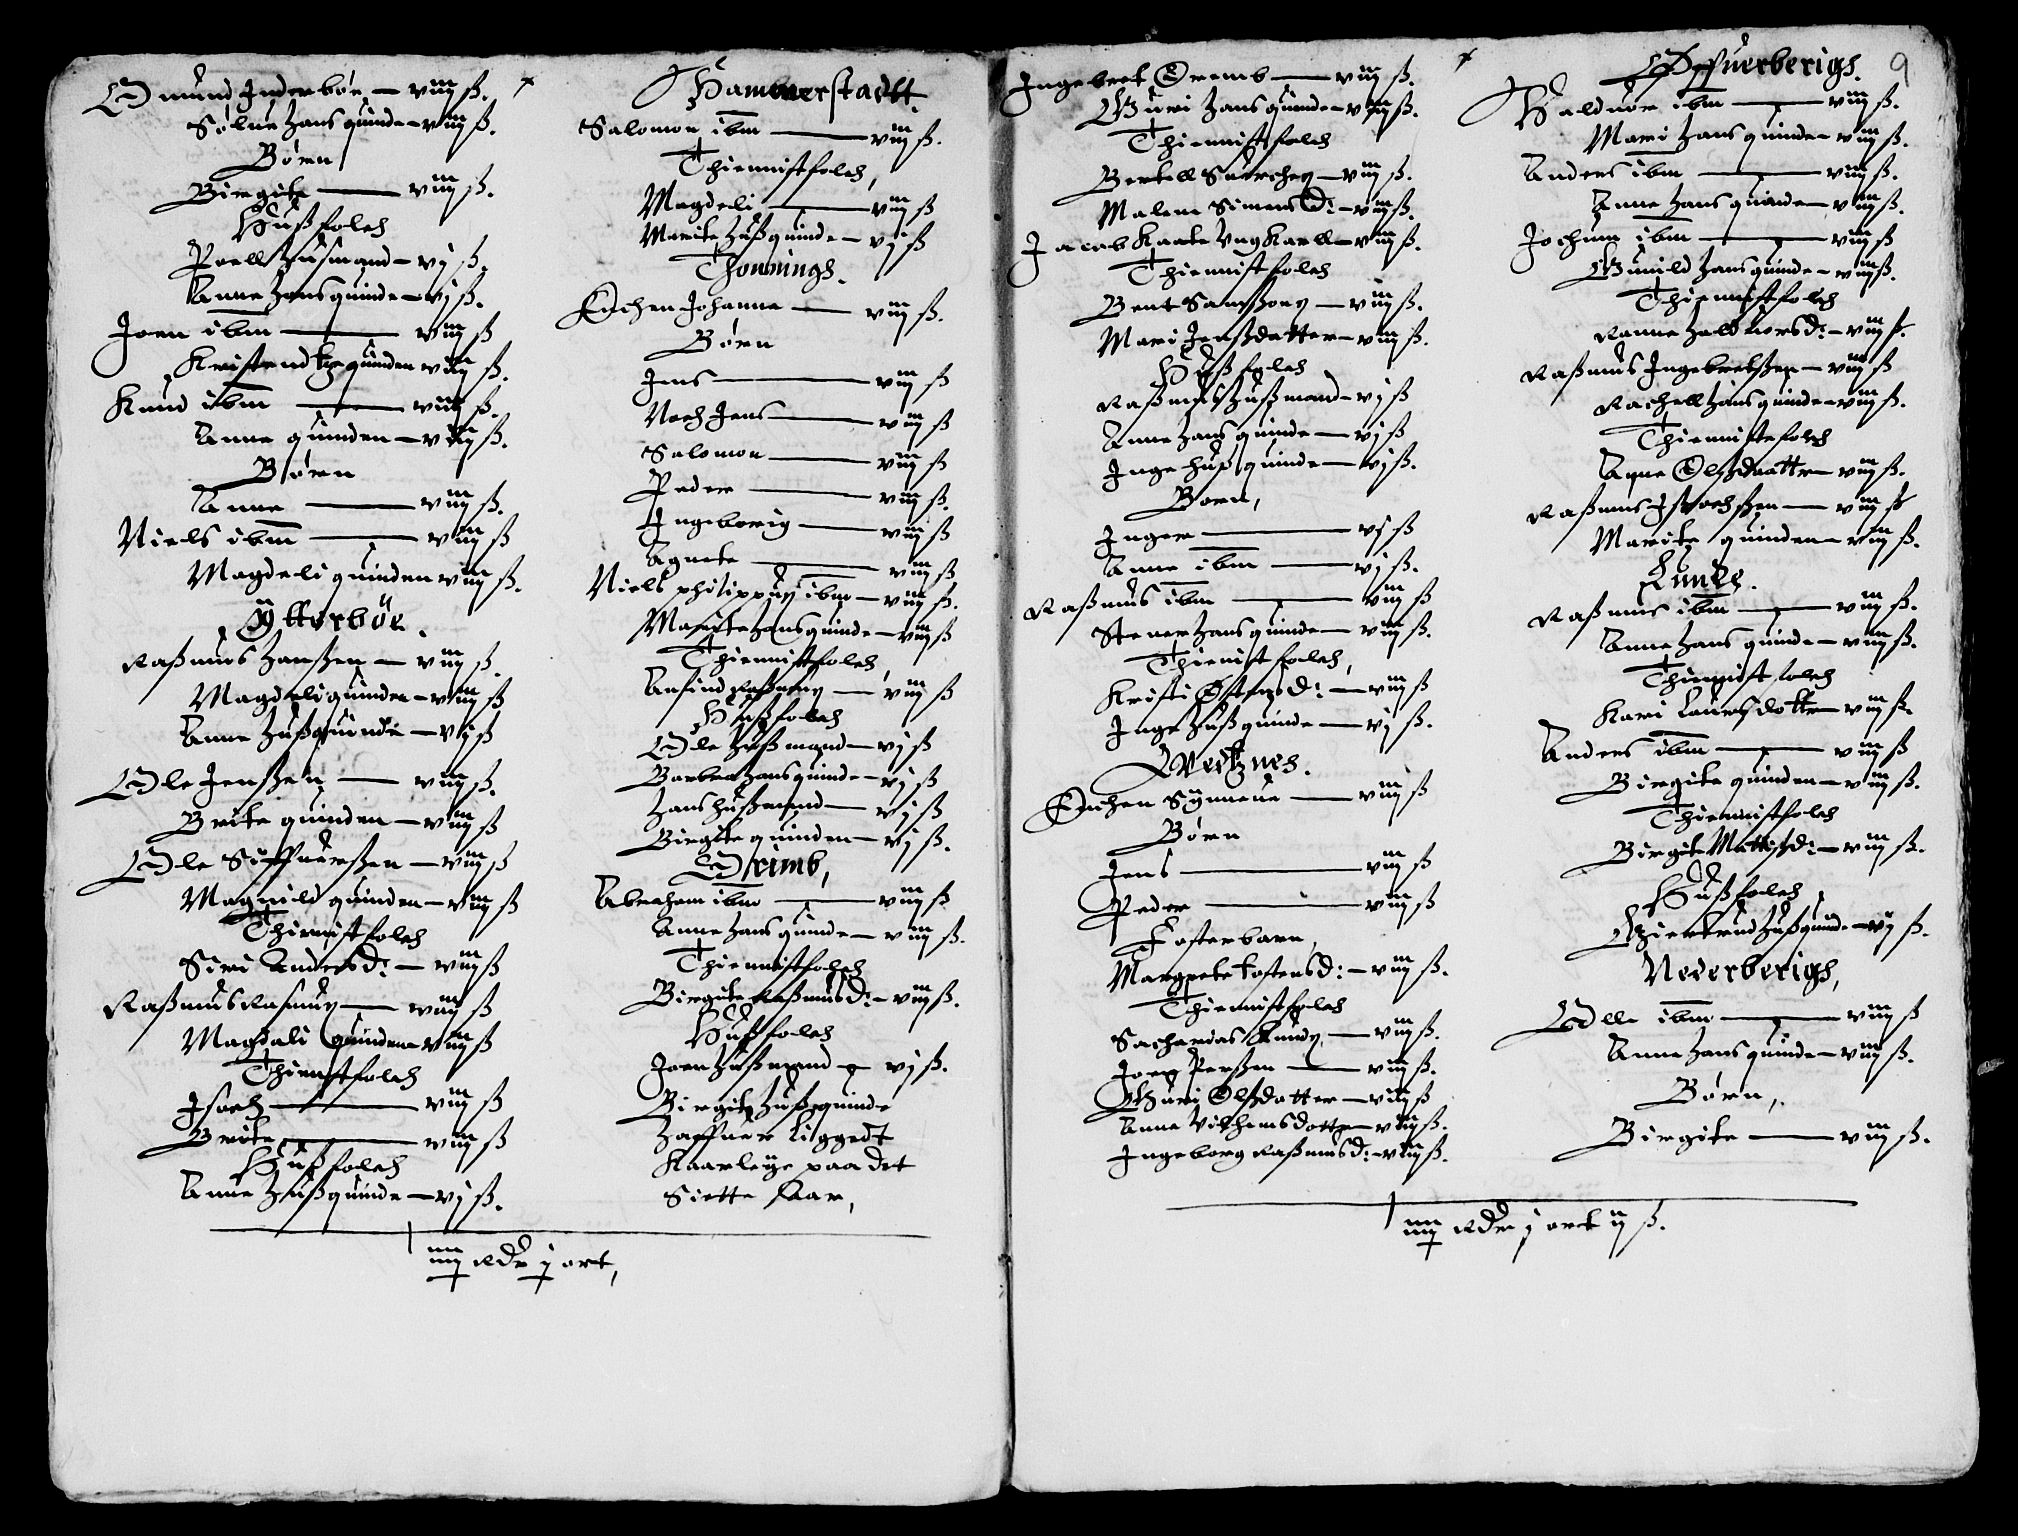 Omund Inderbøe — viij ß.
Sølue hans quinde — viij ß.
Børn
Birgite — viij ß.
Hußfolch
Poell husmand — vj ß.
Anne hans quinde — vj ß.
Joen ibm — viij ß
quinden viij ß.
Knud ibm — viij ß.
Anne quinden — viij ß.
Børn
Anne — viij ß.
Niels ibm — viij ß
Magdeli quinden viij ß.
Ytterbøe.
Raßmus Hanßen — viij ß.
Magdeli quinden — viij ß
Anne Hußquinde — vj ß
Ole Jenßen — viij ß.
Brite quinden — viij ß
Ole Siffuerßen — viij ß
Magnild quinden — viij ß
Thiennistfolch
Siri Andersd: — viij ß
Raßmus Rasmuß — viij ß
Magdali quinden viij ß
Thiennistfolch
Isach — viij ß
Brite — viij ß
Hußfolch
Anne Hußquinde — vj ß.
iiij Rdr j ort,
Hammerstadt.
Salomon ibm — viij ß.
Thiennistfolch,
Magdeli — viij ß
Marite Hußquinde — vj ß
Thonnings.
Enchen Johanne — viij ß.
Børn
Jens — viij ß
Noch Jens — viij ß
Salomon — viij ß
Peder — viij ß.
Ingeborig — viij ß
Agnete — viij ß
Niels philippuß ibm — viij ß.
Marite hans quinde — viij ß
Thiennistfolch,
Anfind Raßmuß — viij ß
Hußfolch
Ole Hußmand — vj ß
Barbra hans quinde — vj ß
Hans hußmand — vj ß
Birgite quinden — vj ß.
Orimb,
Abraham ibm — viij ß
Anne hans quinde — viij ß.
Thiennistfolch
Birgite Raßmusd: — viij ß.
Hußfolch
Joen Hußmand — vj ß.
Birgite Hußquinde
haffuer liggedt
Kaarleye paa det
Siette Aar,
9
Ingebret Oremb — viij ß.
Guri hans quinde — viij ß.
Thiennistfolch
Bertell — viij ß.
Malene Simensd: — viij ß.
Jacab Kaate Ung Karll — viij ß.
Thiennistfolch
Bent Samßonß — viij ß.
Mari Jenßdatter — viij ß.
Hußfolch
Raßmus Hußmand — vj ß
Anne hans quinde — vj ß
Inge hußquinde — vj ß.
Børn,
Inger — vj ß
Anne ibm — vj ß.
Raßmus ibm — viij ß
hans quinde — viij ß.
Thienistfolch,
Kristi Østensd: — viij ß
Inge Hußquinde — vj ß.
Enchen Synneue — viij ß
Børn
Jens — viij ß
Peder — viij ß
Fosterbarn,
Margrete Tostensd: — viij ß.
Thiennistfolch
Sacharias Knudß — viij ß.
Joen Perßen — viij ß.
Guri Olßdatter — viij ß
Anne Vilhemsdotter — viij ß.
Ingeborg Raßmusd: — viij ß.
iiij Rdr j ort ij ß.
Øffuerberigs.
Halduor ibm — viij ß.
Mari hans quinde — viij ß.
Anders ibm — viij ß.
Anne hans quinde — viij ß.
Jochum ibm — viij ß
Gunild hans quinde — viij ß.
Thiennistfolch
Ranne Halduorsd: — viij ß.
Raßmus Ingebretßen — viij ß
Rachell hans quinde — viij ß.
Thiennistefolch
Anne Olßdaatter — viij ß.
Raßmus Isaachßen — viij ß
Marite quinden — viij ß.
Raßmus ibm — viij ß.
Anne hans quinde — viij ß.
Thiennistfolch
Kari Laursdotter — viij ß.
Anders ibm — viij ß
Birgite quinden — viij ß.
Thiennistfolch
Birgite Mattißd: — viij ß.
Hußfolch
Giertrud Hußquinde — vj ß.
Nederberigs,
Olle ibm — viij ß
Anne hans quinde — viij ß.
Børn,
Birgite — viij ß.